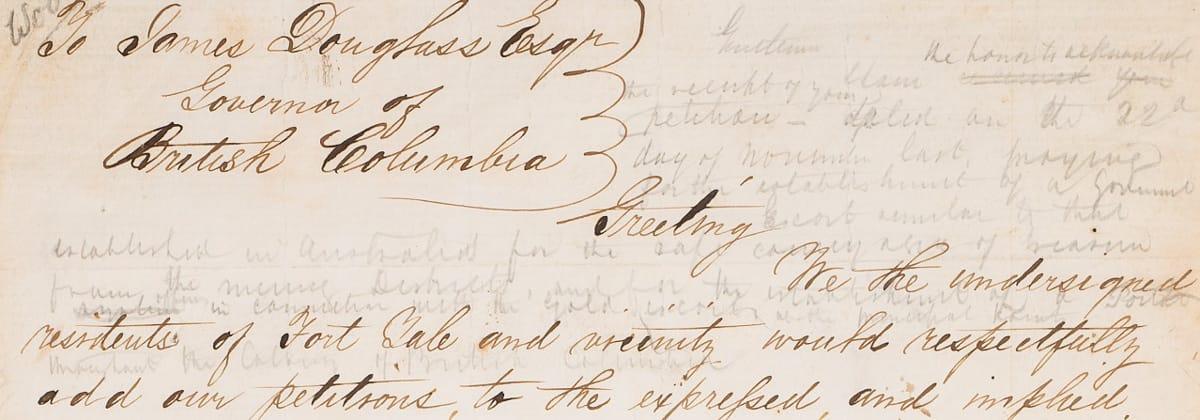 To James Douglass Esqr
Governor of
British Columbia
Greeting
We the undersigned
residents of Fort Yale and vicinity would respectfully
add our petitions, to the expressed, and implied
Gentlemen
the honor to acknowledge
the receipt of your
petition - dated on the 22d
day of November last, praying
for the establishment of a Government
Escort similar to that
established in Australia for the safe conveyance of treasure
from the mining Districts, and for the establishment of a
in connection with the gold escort at the principal
throughout the Colony of British Columbia